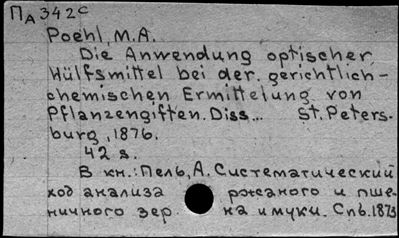 Пд 342с
Poehl, M.A.
Die Anwendung optischer
Hülfsmittel bei der gerichtlich-
chemischen Ermittelung von
Pflanzengiften. Diss... St. Peters-
burg, 1876.
42 s.
В кн.: Пель, А. Систематический
ход анализа ржаного и пше-
ничного зер. на и муки. Спб. 1873